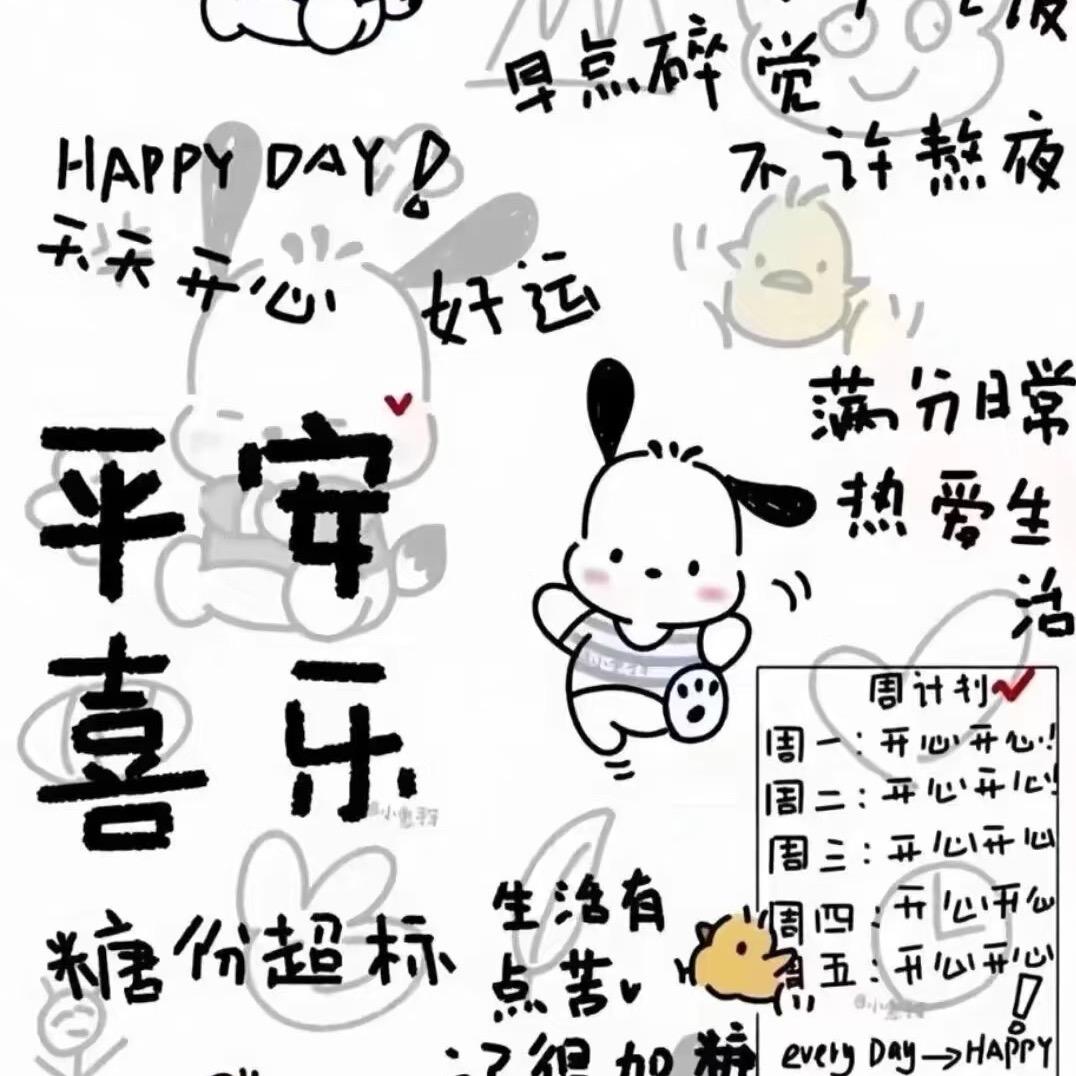 早点碎觉
不许熬夜
HAPPY DAY!
天天开心
好运
满分日常
热爱生
活
平安
喜乐
周计划
周一:开心开心!
周二:开心开心!
周三:开心开心
周四:开心开心
周五:开心开心!
every Day→HAPPY
糖份超标
生活有
点苦
记得加糖